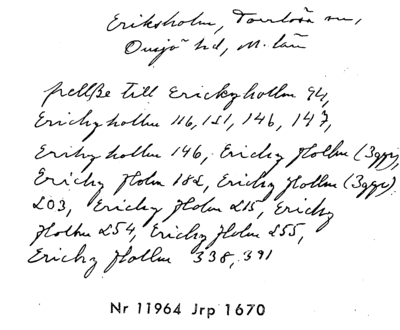 Eriksholm, Torrlösa sn,
Onsjö hd, M. län
pellße till Erickzhollm 94,
Erichz hollm 116, 121, 146, 147,
Erichz hollm 146, Erichz Hollm (3ggr)
Erichz Holm 182, Erichz Hollm (3ggr)
203, Erichz Holm 215, Erichz
Hollm 254, Erichz Holm 255,
Erichz Hollm 338, 391
Nr 11964 Jrp 1670